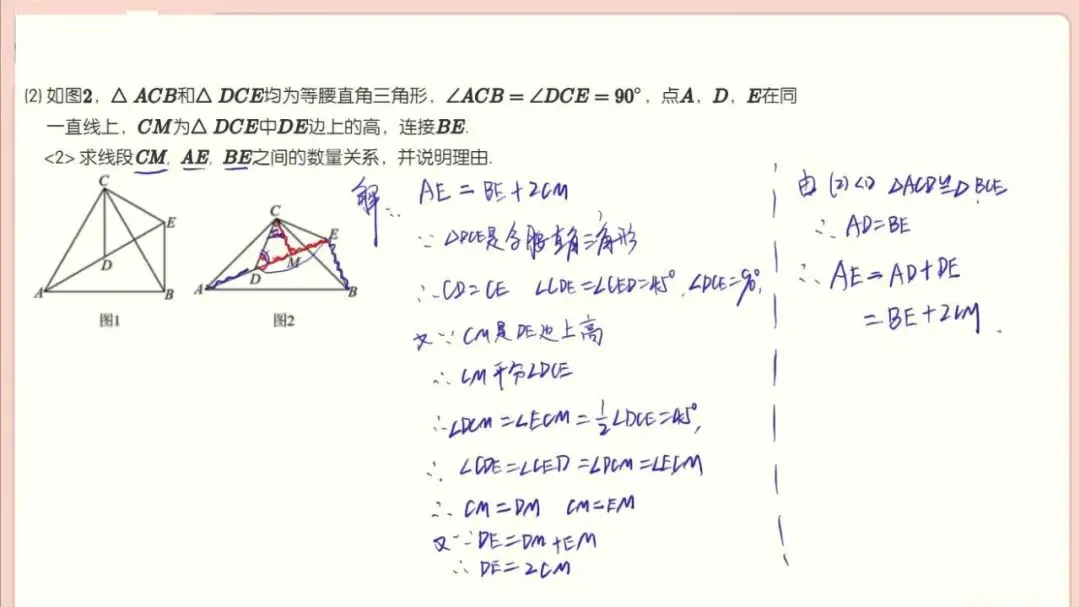 (2) 如图2，△ ACB和△ DCE均为等腰直角三角形，∠ACB = ∠DCE = 90°，点A，D，E在同
一直线上，CM为△ DCE中DE边上的高，连接BE.
<2> 求线段CM，AE，BE之间的数量关系，并说明理由.
C
E
D
A
B
图1
C
E
M
D
A
B
图2
解： AE = BE + 2CM
∵ △DCE是等腰直角三角形
∴ CD = CE ∠CDE = ∠CED = 45°, ∠DCE = 90°,
又∵ CM是DE边上高
∴ CM平分∠DCE
∴ ∠DCM = ∠ECM = 1/2∠DCE = 45°,
∴ ∠CDE = ∠CED = ∠DCM = ∠ECM
∴ CM = DM CM = EM
又∵ DE = DM + EM
∴ DE = 2CM
由(2)<1> △ACD≌△BCE
∴ AD = BE
∴ AE = AD + DE
= BE + 2CM.